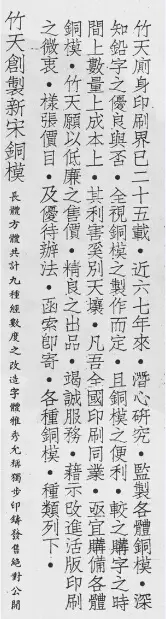 竹天廁身印刷界已二十五載・近六七年來・潛心硏究・監製各體銅模・深
知鉛字之優良與否・全視銅模之製作而定・且銅模之便利・較之購字之時
間上數量上成本上・其利害奚別天壤・凡吾全國印刷同業・亟宜購備各體
銅模・竹天願以低廉之售價・精良之出品・竭誠服務・藉示改進活版印刷
之微衷・樣張價目・及優待辦法・函索卽寄・各種銅模・種類列下・
竹天創製新宋銅模
長體方體共計九種經數度之改造字體雅秀尤稱獨步印鑄發售絕對公開